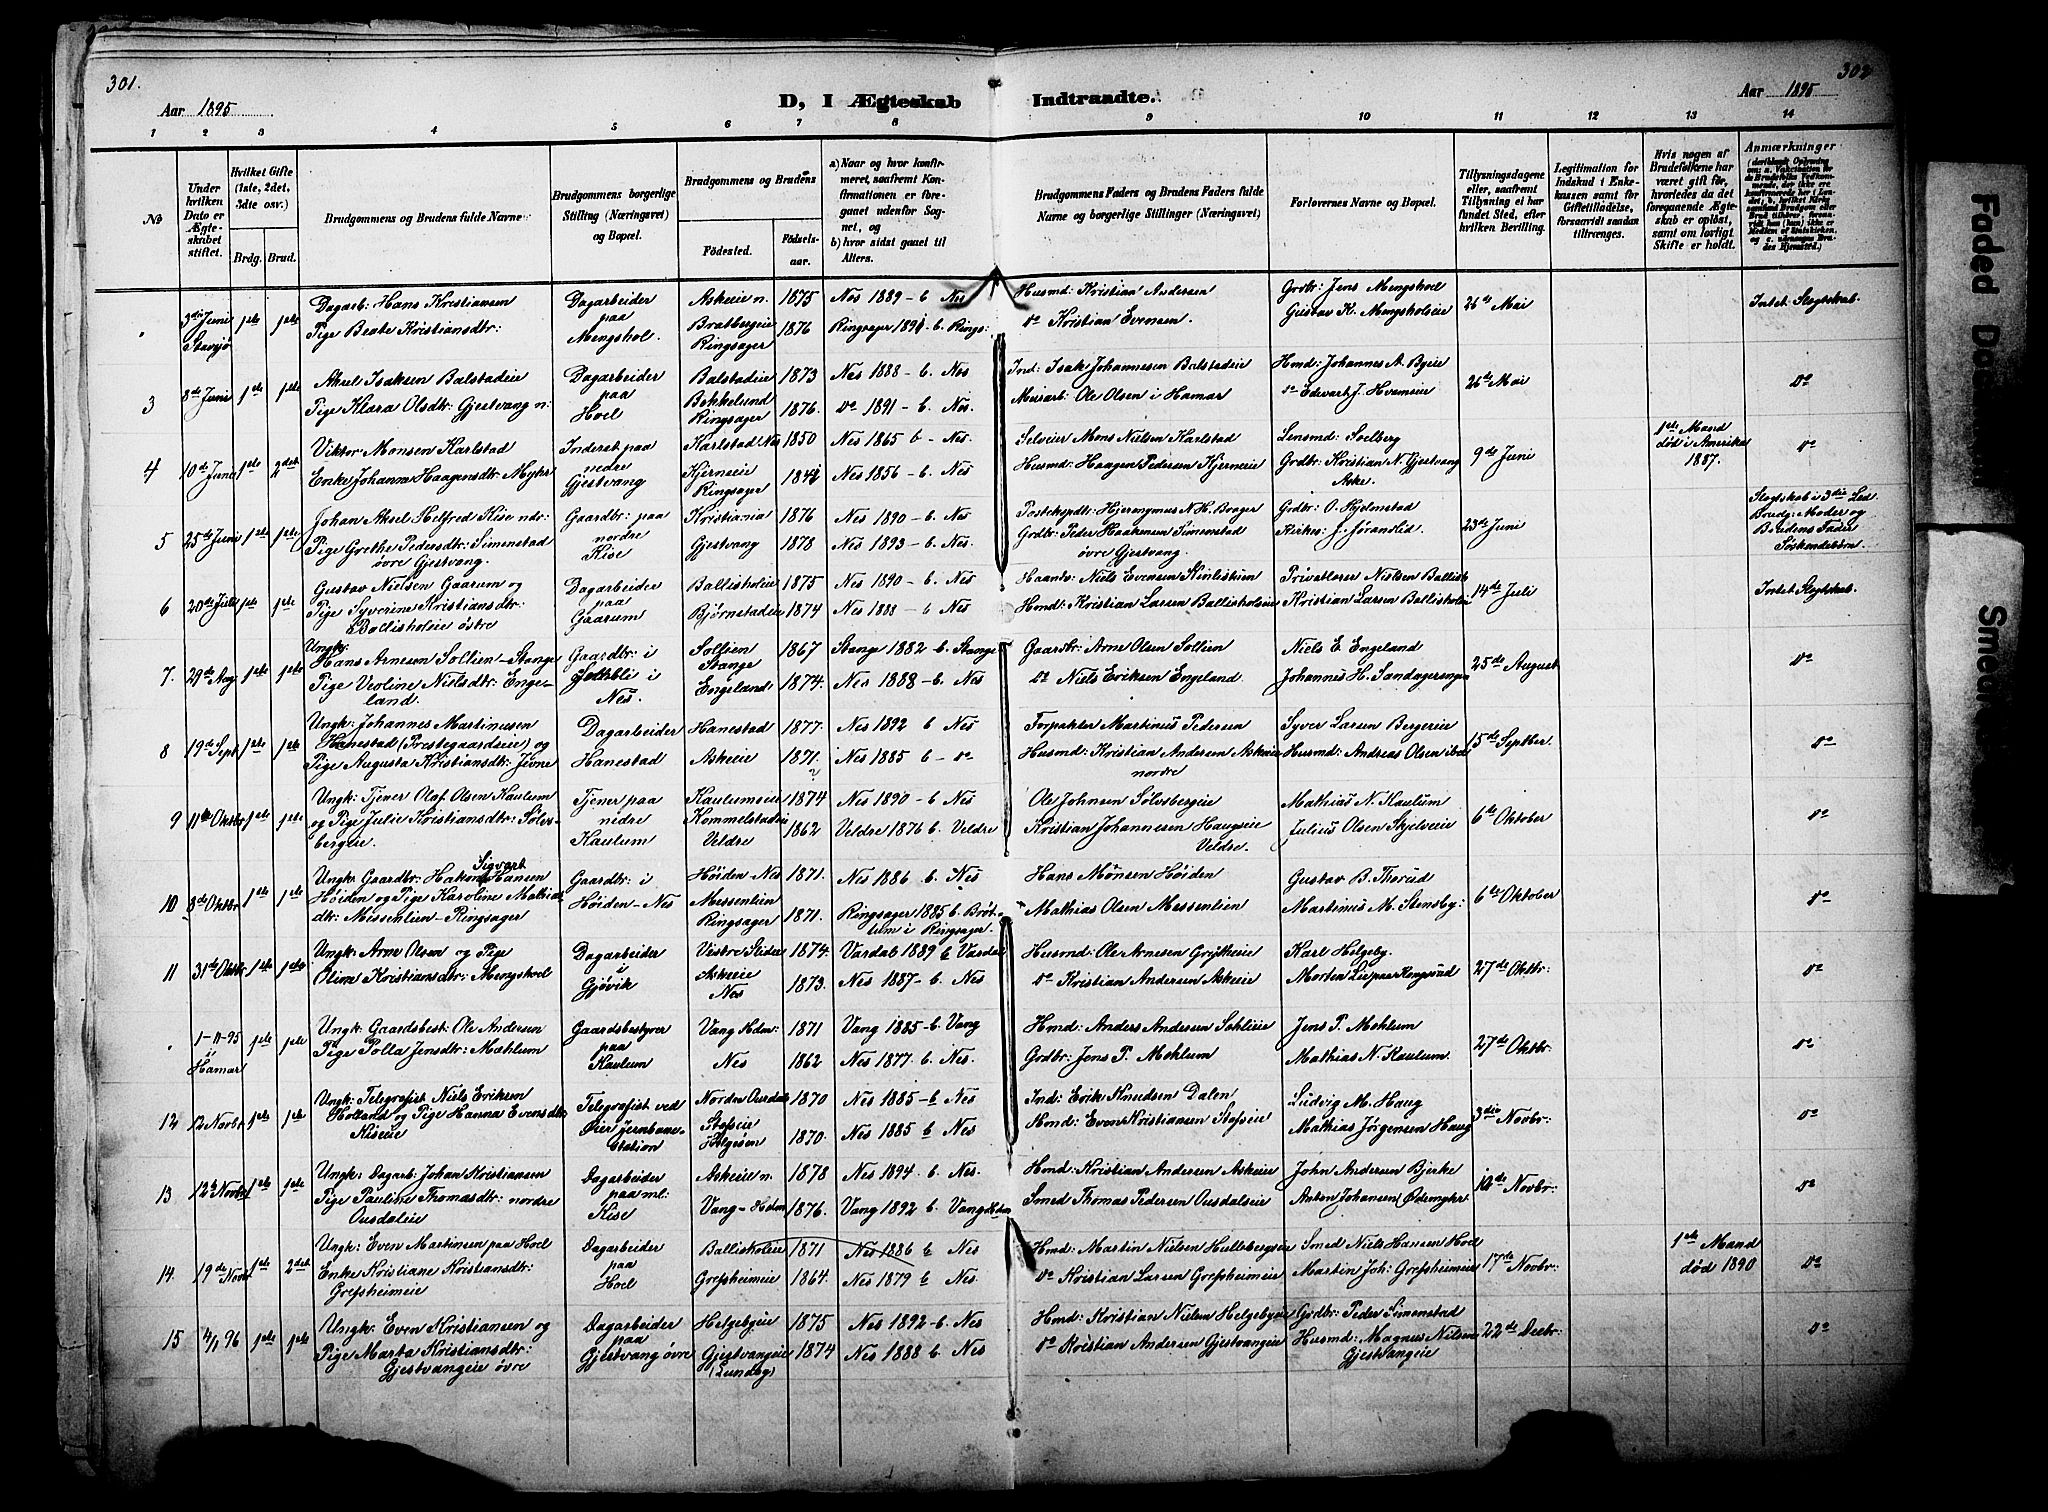 301.
302
Aar 1895
D, I Ægteskab Indtraadte.
Aar 1895
1 2 3 4 5 6 7 8 9 10 11 12 13 14
No
Under hvilken Dato er Ægteskabet stiftet.
Hvilket Gifte (1ste, 2det, 3die osv.)
Brdg. Brud.
Brudgommens og Brudens fulde Navne.
Brudgommens borgerlige Stilling (Næringsvei) og Bopæl.
Brudgommens og Brudens
Fødested.
Fødselsaar.
a) Naar og hvor konfirmeret, saafremt Konfirmationen er foregaaet udenfor Sognet, og
b) hvor sidst gaaet til Alters.
Brudgommens Faders og Brudens Faders fulde Navne og borgerlige Stillinger (Næringsvei)
Forlovernes Navne og Bopæl.
Tillysningsdagene eller, saafremt Tillysning ei har fundet Sted, efter hvilken Bevilling.
Legitimation for Indskud i Enkekassen samt for Giftetilladelse, forsaavidt saadan tiltrænges.
Hvis nogen af Brudefolkene har været gift før, hvorledes da det foregaaende Ægteskab er opløst, samt om lovligt Skifte er holdt.
Anmærkninger
3die Juni Stavsjø 1ste 1ste
Dagarb: Hans Kristiansen
Pige Beate Kristiansdtr:
Dagarbeider paa Mengshol.
Askeie n. 1875 Nes 1889 - b. Nes
Bratbergeie Ringsager 1876 Ringsager 1891 - b. Rings:
Husmd: Kristian Andersen
do Kristian Evensen.
Grdbr: Jens Mengshoel
Gustav K. Mengsholeie
26de Mai
Intet Slegtskab.
3 8de Juni 1ste 1ste
Aksel Isaksen Balstadeie
Pige Klara Olsdtr: Gjestvang n:
Dagarbeider paa Hoel
Balstadeie 1873 Nes 1888 - b. Nes
Bekkelund Ringsager 1876. do 1891 - b. Nes.
Ind: Isak Johannesen Balstadeie
Ole Olsen i Hamar
Hmd: Johannes A. Byeie
do Edevart J. Hvemeie
26de Mai
do
4 10de Juni 1ste 2det
Viktor Monsen Karlstad
Enke Johanne Haagensdtr: Myhr
Inderst paa nedre Gjestvang
Karlstad Nes 1850 Nes 1865 b - Nes.
Kjerneie Ringsager 1842 Nes 1856 - b. Nes
Selveier Mons Nielsen Karlstad
Husmd: Haagen Pedersen Kjerneie
Lensmd: Soelberg
Grdbr: Kristian N. Gjestvang Aske.
9de Juni
1ste Mand død i Amerika 1887.
do
5 25de Juni 1ste 1ste
Johan Aksel Helfred Kise ndr:
Pige Grethe Pedersdtr: Simenstad
øvre Gjestvang.
Gaardbr: paa nordre Kise
Kristiania 1876 Nes 1890 - b. Nes
Gjestvang 1878 Nes 1893 - b. Nes.
Postexpdtr: Hjeronymus N. H. Brager
Grdbr: Peder Haakensen Simenstad
øvre Gjestvang.
Grdbr: O. Hjelmstad
Kirkes: J. Jørandlid.
23de Juni
Slegtskab i 3die Led.
Brudg: Moder og
Brudens Fader
Søskendebørn.
6 20de Juli 1ste 1ste
Gustav Nielsen Gaarum og
Pige Syverine Kristiansdtr:
Ballisholeie østre
Dagarbeider paa Gaarum
Ballisholeie 1875 Nes 1890 - b. Nes
Bjørnstadeie 1874 Nes 1888 - b Nes
Haandv: Niels Evensen
Hmd: Kristian Larsen Ballisholeie
Nielsen
Kristian Larsen Ballisholeie
14de Juli
Intet Slegtskab.
7. 29de Aug 1ste 1ste
Ungk: Hans Arnesen Sollien - Stange
Pige Veoline Nielsdtr: Engeland.
Gaardbr: i Nes.
Sollien Stange 1867 Stange 1882 - b. Stange
Engeland 1874. Nes 1888 - b. Nes
Gaardbr: Arne Olsen Sollien
do Niels Eriksen Engeland.
Niels E. Engeland
Johannes H. Sandagersengen
25de August
do
8 19de Sept. 1ste 1ste
Ungk: Johannes Martinusen
Hanestad (Prestegaardseie) og
Pige Augusta Kristiansdtr: Jevne
Dagarbeider Hanestad
Hanestad 1877. Nes 1892 b Nes
Askeie 1871. Nes 1885 b - do
Forpakter Martinus Pedersen
Husmd: Kristian Andersen Askeie
nordre
Syver Larsen Bergeeie
Husmd: Andreas Olsen ibd
15de Septber.
do
9 11te Oktbr 1ste 1ste
Ungk: Tjener Olaf Olsen Kaulum
og Pige Julie Kristiansdtr: Sølvsbergeie.
Tjener paa nedre Kaulum
Kaulumseie 1874 Nes 1890 - b Nes
Kommelstadeie Veldre 1862 Veldre 1876 b. Veldre
Ole Johnsen Sølvsbergeie
Kristian Johannesen Haugseie
Veldre.
Mathias N. Kaulum
Julius Olsen Skjelveie
6te Oktober
do
10 3de Oktbr 1ste 1ste
Ungk: Gaardbr: Hakon Sigvart Hansen
Høiden og Pige Karoline Mathiasdtr: Messenlien - Ringsager
Gaardbr: i Høiden - Nes
Høiden Nes 1871. Nes 1886 b. Nes
Messenlien Ringsager 1871. Ringsager 1885 b. Brøttum i Ringsager.
Hans Monsen Høiden
Mathias Olsen Messenlien
Gustav B. Thorud
Martinus M. Stensby:
6te Oktober
do
11 31de Oktbr 1ste 1ste
Ungk: Arne Olsen og Pige
Oline Kristiansdtr: Mengshoel
Dagarbeider i Gjøvik
Vestre Slidre 1874. Vardal 1889 b Vardal
Askeie Nes 1873. Nes 1887 - b. Nes
Husmd: Ole Arnesen
do Kristian Andersen Askeie
Karl Helgeby.
Morten
27de Oktbr:
do
1-11-95 i Hamar 1ste 1ste
Ungk: Gaardsbest: Ole Andersen
Pige Polla Jensdtr: Mæhlum
Gaardsbestyrer paa Kaulum
Vang Hdm: 1871 Vang 1885 - b. Vang
Nes 1862 Nes 1877. b. Nes.
Hmd: Anders Andersen
Grdbr: Jens P. Mehlum
Jens P. Mehlum
Mathias N. Kaulum.
27de Oktbr:
do
12 12 Novbr 1ste 1ste
Ungk: Telegrafist Niels Eriksen
Holland og Pige Hanna Evensdtr
Kiseie
Telegrafist ved Øier Jernbanestation
Nordre 1870 Nes 1885 - b Nes
Stafseie Helgøen 1870. Nes 1885 b Nes
Ind: Erik Knudsen Dalen
Hmd: Even Kristiansen Stafseie
Ludvig M. Haug
Mathias Jørgensen Haug
3die Novbr:
do
13 12te Novbr 1ste 1ste
Ungk: Dagarb: Johan Kristiansen
Pige Pauline Thomasdtr: nordre
Ousdaleie
Dagarbeider paa ml: Kise
Askeie n. 1878 Nes 1894 - b. Nes.
Vang - Hedm 1876. Vang 1892 b. Vang Hdm
Hmd: Kristian Andersen Askeie
Smed Thomas Pedersen Ousdaleie
John Andersen Bjerke
Anton Johansen Ødemyhrt
10de Novbr:
do
14. 19de Novbr 1ste 2det
Ungk: Even Martinsen paa Hoel
Enke Kristiane Kristiansdtr:
Grefsheimeie
Dagarbeider paa Hoel
Ballisholeie 1871 Nes 1886 b Nes
Grefsheimeie 1864. Nes 1879 b Nes.
Hmd: Martin Nielsen
do Kristian Larsen Grefsheimeie
Smed Niels Hansen Hoel
Martin Joh: Grefsheimeie
17de Novbr:
1ste Mand død 1890
do
15 4/1 96 1ste 1ste
Ungk: Even Kristiansen og
Pige Marta Kristiansdtr:
Gjestvangeie øvre
Dagarbeider paa Gjestvang øvre
Helgebyeie 1875 Nes 1892 - b. Nes
Gjestvangeie (Lundby) 1874 Nes 1888 b Nes
Hmd: Kristian Nielsen Helgebyeie
do Kristian Andersen Gjestvangeie
Grdbr: Peder Simenstad
Husmd: Magnus Nielsen
Gjestvangeie
22de Decbr:
do
Faded